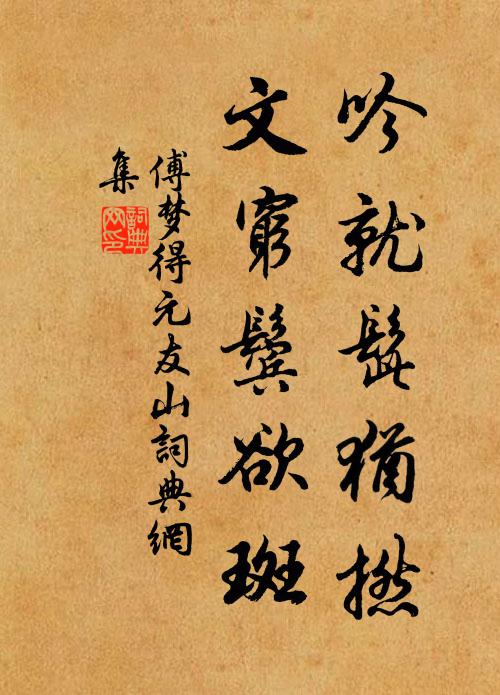 吟就髭猶撚
文窮鬢欲斑
傅梦得元友山詞典網
集
詞典
网印